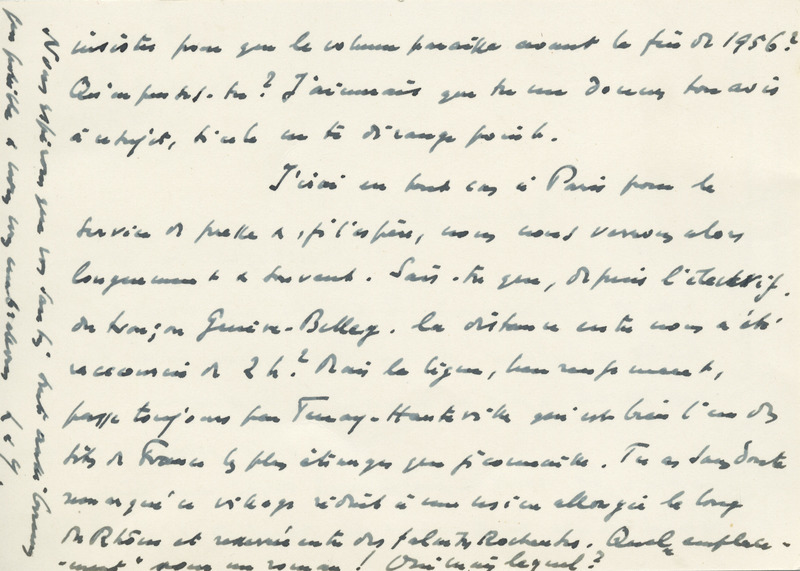 insistes pour que le volume paraisse avant la fin de 1956?
Qu'en penses-tu? J'aimerais que tu me donnes ton avis
à ce sujet, si cela ne te dérange point.
J'irai en tout cas à Paris pour le
service de presse &, je l'espère, nous nous verrons alors
longuement & souvent. Sais-tu que, depuis l'électrif.
du tronçon Genève-Belleg. la distance entre nous a été
raccourcie de 2 h.? Mais la ligne, heureusement,
passe toujours par Tenay-Hauteville qui est bien l'un des
sites de France les plus étranges que je connaisse. Tu as sans doute
remarqué ce village réduit à une usine allongée le long
du Rhône et resserrée entre des falaises Rocheuses. Quel "emplace-
-ment" pour un roman! Oui mais lequel?
Nous espérons que vos santés sont aussi bonnes
que possible & vous